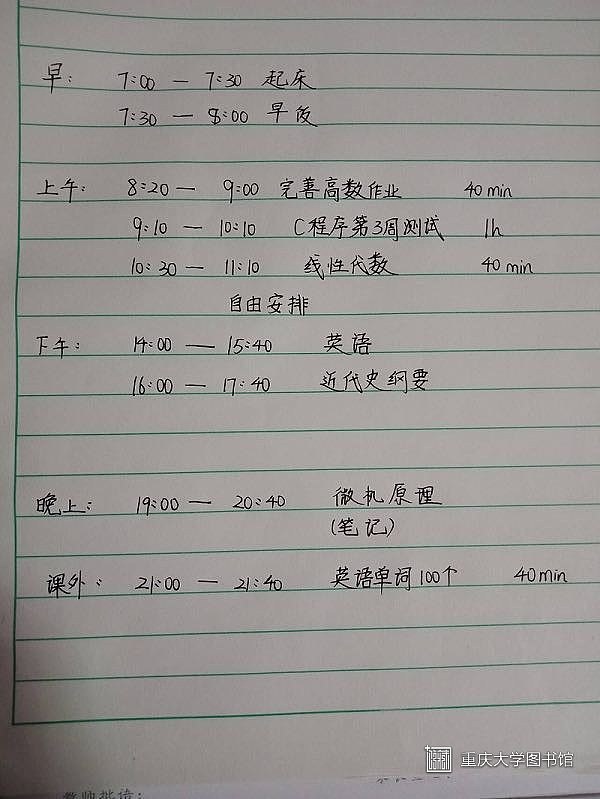 早: 7:00 — 7:30 起床
7:30 — 8:00 早饭
上午: 8:20 — 9:00 完善高数作业 40 min
9:10 — 10:10 C程序第3周测试 1h
10:30 — 11:10 线性代数 40 min
自由安排
下午: 14:00 — 15:40 英语
16:00 — 17:40 近代史纲要
晚上: 19:00 — 20:40 微机原理
(笔记)
课外: 21:00 — 21:40 英语单词100个 40min
重庆大学图书馆